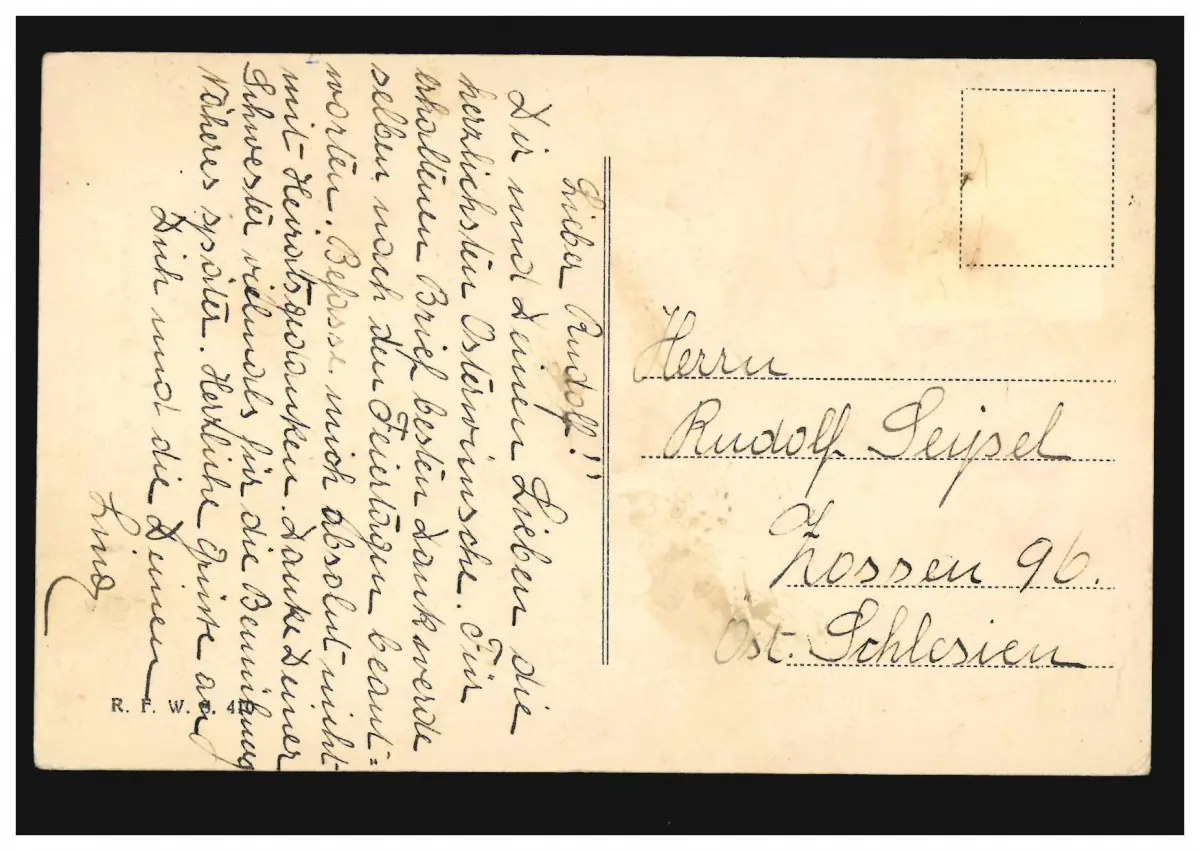 Lieber Rudolf!"
Dir und Deinen Lieben die
herzlichsten Osterwünsche. Für
erhaltenen Brief besten Dank werde
selben nach den Feiertagen beant=
worten. Befasse mich absolut nicht
mit Heiratsgedanken. Danke Deiner
Schwester vielmals für die Bemühung
Näheres später. Herzliche Grüße an
Dich und die Deinen
Herrn
Rudolf Seipel
Zossen 96.
Ost. Schlesien
R. F. W.